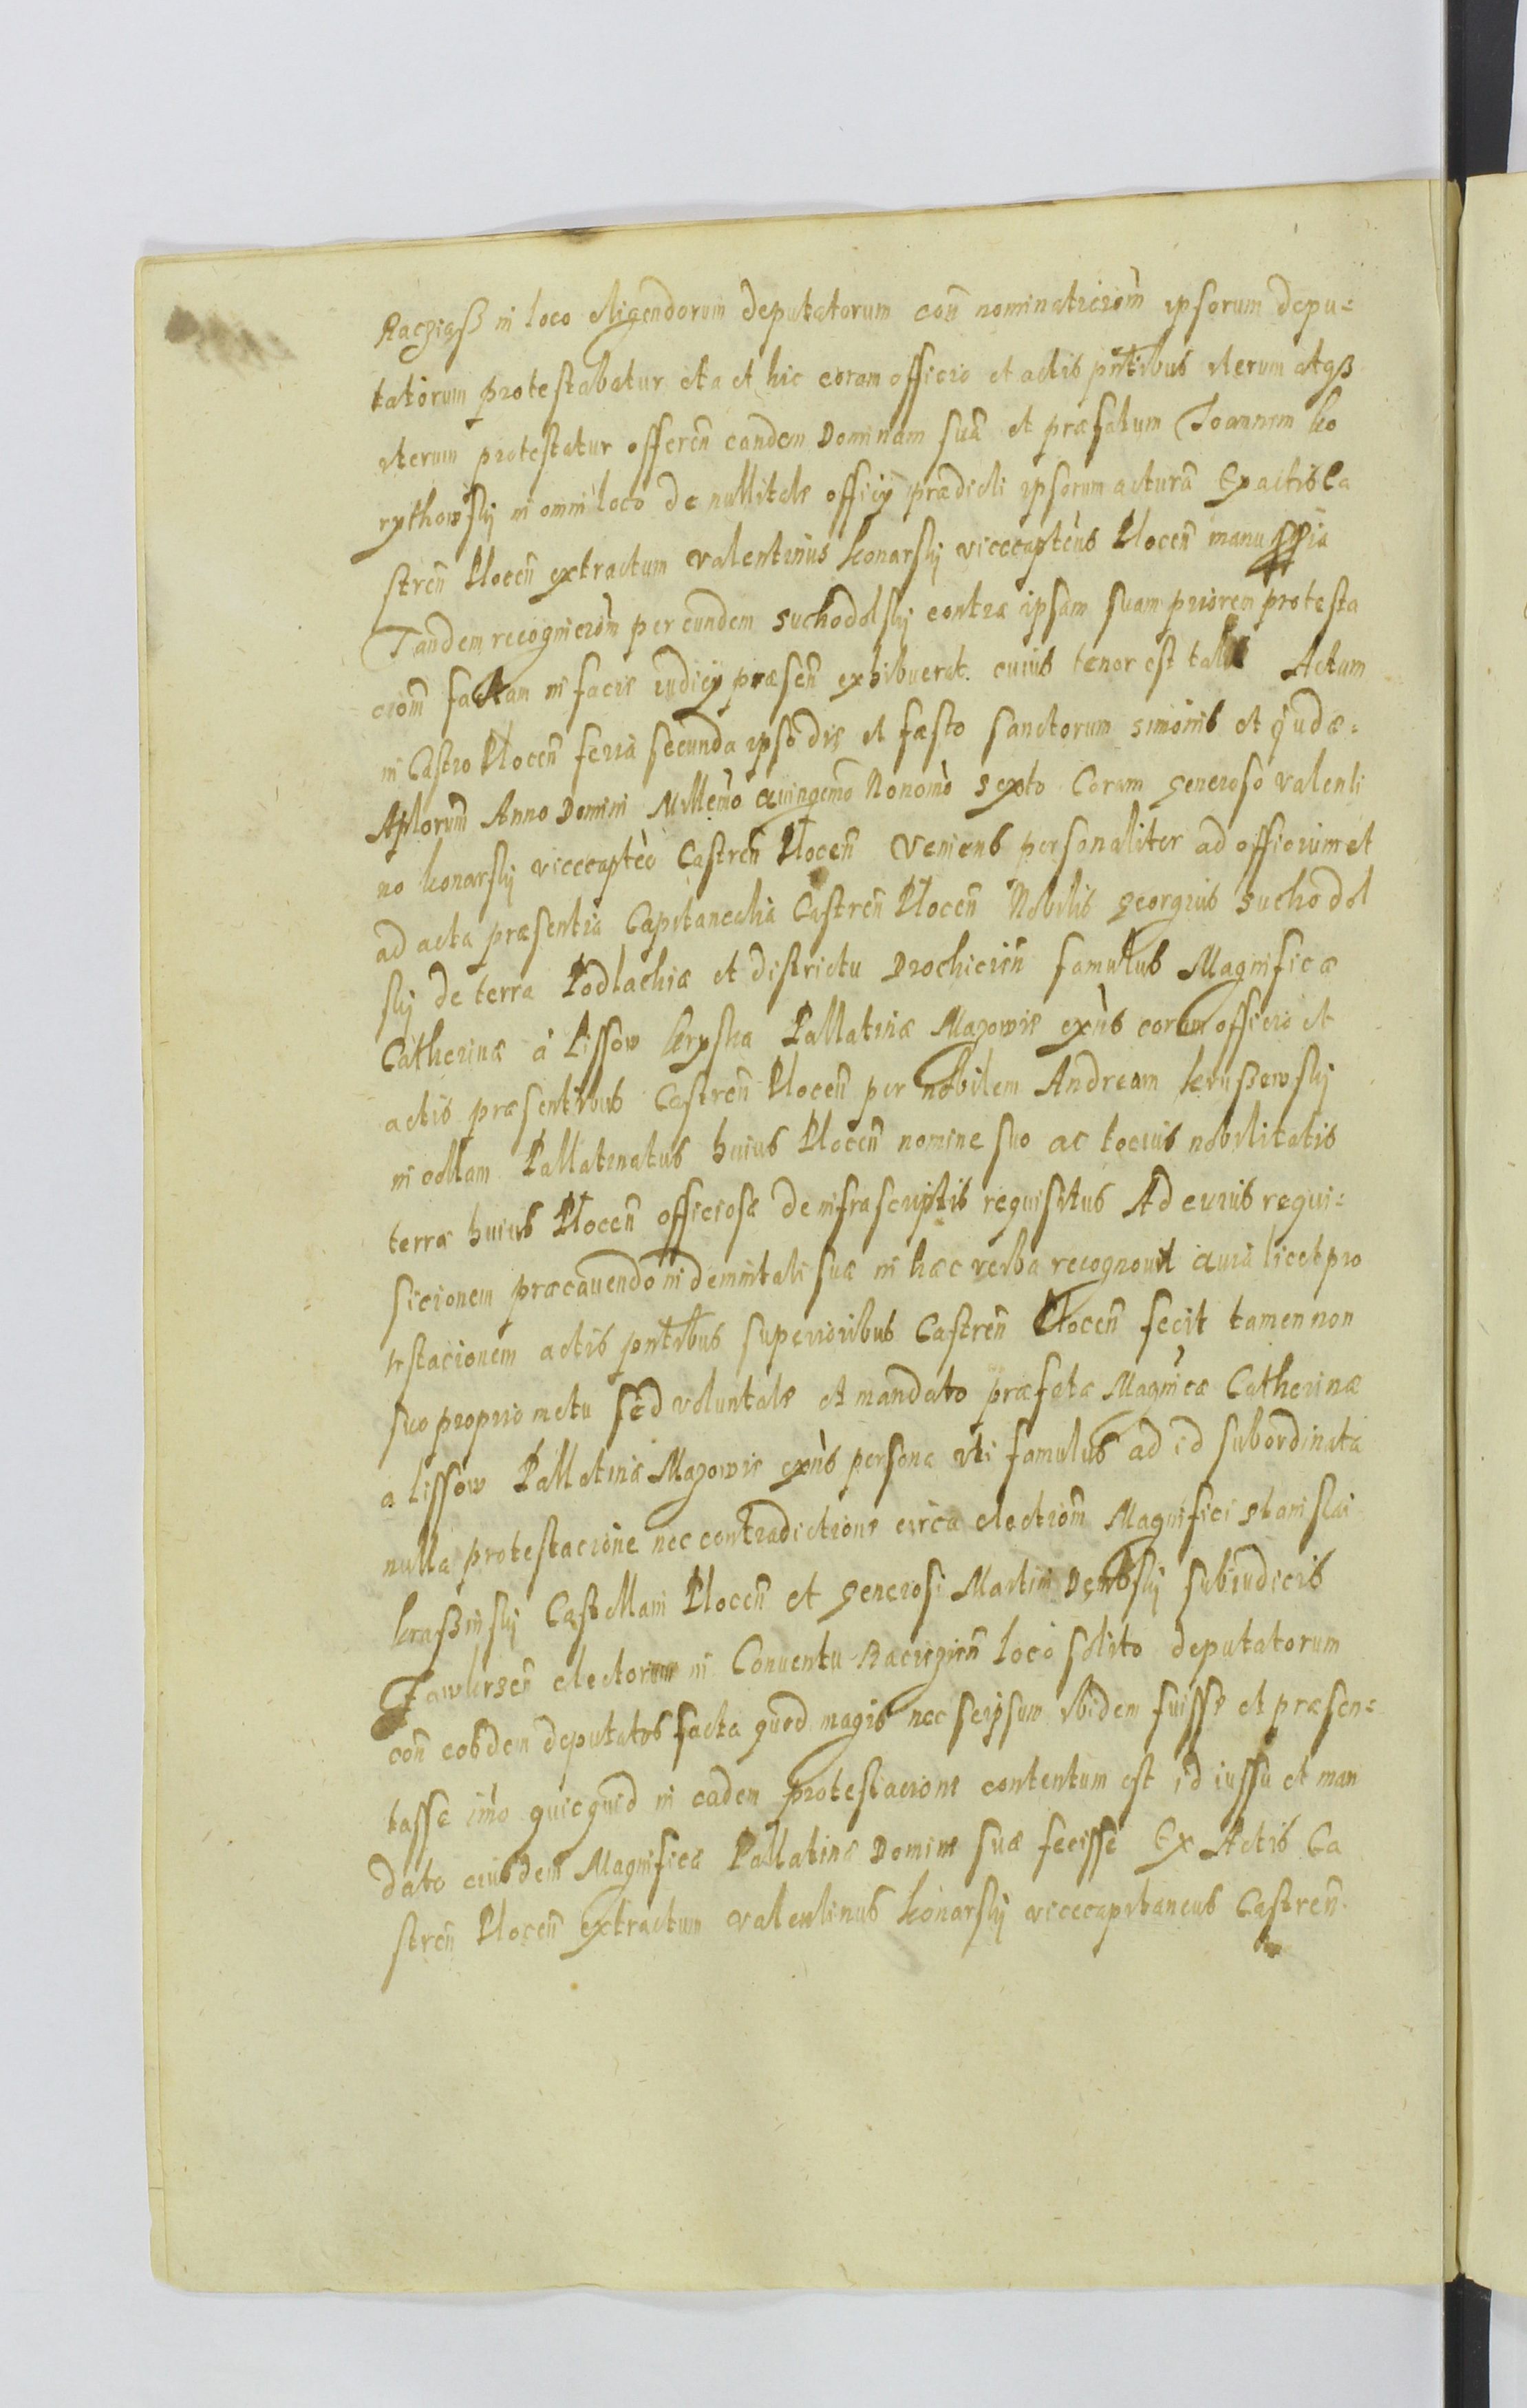 Racziąß in loco eligendorum deputatorum con̄ nominaticiom̄ ipsorum depu=
tatorum protestabatur ita et hic coram officio et actis pn̄tibus iterum atqβ
iterum protestatur offeren̄ eandem Dominam suā et præfatum Joannem Ko
rythowskÿ in omni loco de nullitate officÿ prædicti ipsorum acturā Ex actis Ca
stren̄ Plocen̄ extractum Valentinus Konarskÿ vicecaptēus Plocen̄ manu ppia
Tandem recognicion̄m per eundem Suchodolskÿ contra ipsam suam priorem protesta
ciom̄ factam in facie iudicÿ præsen̄ exhibuerat. cuius tenor est talis Actum
in Castro Plocen̄ feria secunda ipso die et fæsto sanctorum Simonis et Judæ=
Aplorum̄ Anno Domini Millemo Quingemo Nonomo sexto Coram generoso Valenti
no Konarskÿ vicecaptēo Castren̄ Plocen̄ Veniens personaliter ad officium et
ad acta præsentia Capitanealia Castren̄ Plocen̄ Nobilis Georgius Suchodol
skÿ de terra Podlachiæ et districtu Drohicien̄ famulus Magnificæ
Catherinæ a Lissow Krÿska Pallatinæ Mazowie exn̄s coram officio et
actis præsentibus Castren̄ Plocen̄ per nobilem Andream Krußewskÿ
incollam Pallatinatus huius Plocen̄ nomine suo ac tocius nobilitatis
terræ huius Plocen̄ officiose de infrascriptis requisitus Ad cuius requi=
sicionem præcauendo indemnitati suæ in hæc verba recognouit Quia licet pro
testacionem actis pn̄tibus superioribus Castren̄ Plocen̄ fecit tamen non
suo proprio metu sed voluntate et mandato præfatæ Magn̄icæ Catherinæ
a Lissow Pallatinæ Mazowie exn̄s persona vti famulus ad id subordinata
nulla protestacione nec contradictione circa electiom̄ Magnifici Stanislai
Kraßinskÿ Castellani Plocen̄ et generosi Martini Dembskÿ subiudicis
Zawkrzen̄ electorum in Conuentu Raciązien̄ loco solito deputatorum
con̄ eosdem deputatos facta quod magis nec seipsum ibidem fuisse et præsen=
tasse imo quicquid in eadem protestacione contentum est id iussu et man
dato eiusdem Magnificæ Pallatinæ Dominæ suæ fecisse Ex Actis Ca
stren̄ Plocen̄ extractum Valentinus Konarskÿ vicecapitaneus Castren̄.